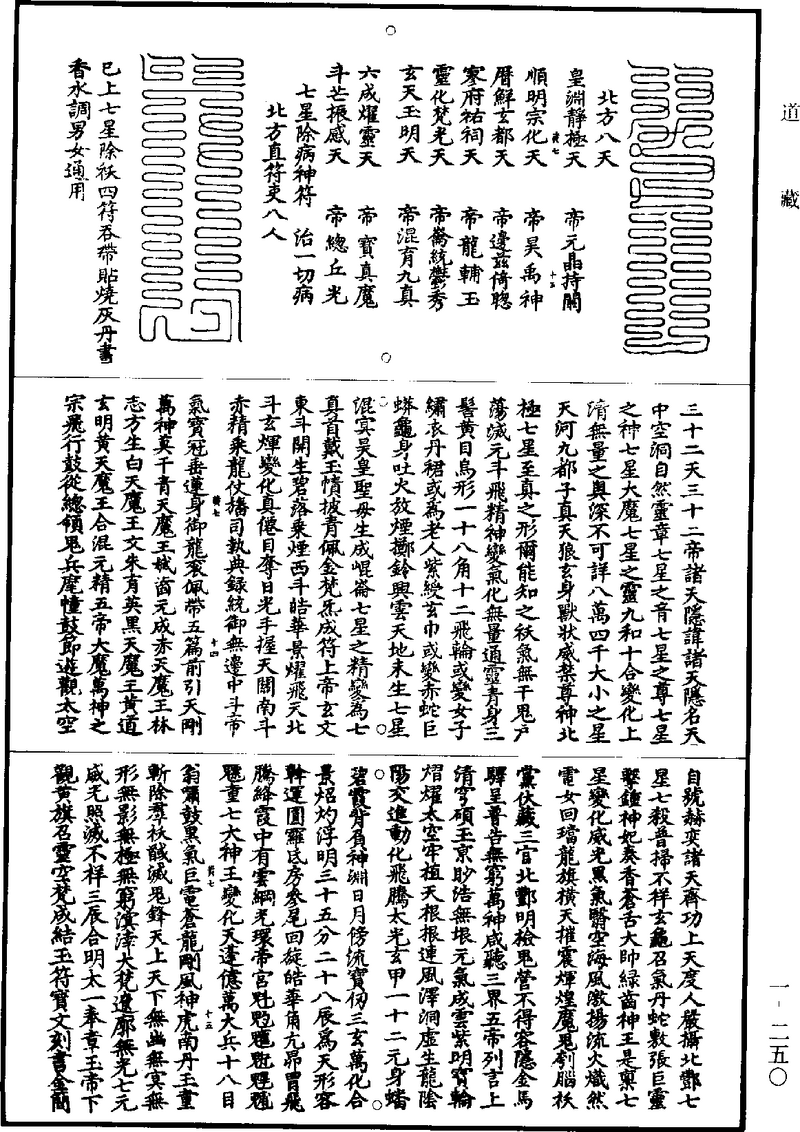 道藏
北方八天
皇淵靜極天　帝元晶持關
順明宗化天　帝昊禹神
曆鮮玄都天　帝邊茲倚聰
寥府祐祠天　帝龍輔玉
靈化梵光天　帝崙統鬱秀
玄天玉明天　帝混育九真
六成燿靈天　帝寶真魔
斗芒振感天　帝總丘光
七星除病神符　治一切病
北方直符吏八人
已上七星除袄四符吞帶貼燒灰丹書
香水調男女通用
三十二天三十二帝諸天隱諱諸天隱名天
中空洞自然靈章七星之音七星之尊七星
之神七星大魔七星之靈九和十合變化上
清無量之奧深不可詳八萬四千大小之星
天河九都子真天狼玄身獸狀威禁尊神北
極七星至真之形爾能知之袄氣無干鬼尸
蕩滅元斗飛精神變氣化無量通靈青身三
髻黃目鳥形一十八角十二飛輪或變女子
繡衣丹裙或為老人紫綬玄巾或變赤蛇巨
蟒龜身吐火放煙擲鈴興雲天地未生七星
混冥昊皇聖母生成崐崙七星之精變為七
真首戴玉幘披青佩金梵炁成符上帝玄文
東斗開生碧落乘煙西斗皓華景燿飛天北
斗玄煇變化真僊目奪日光手握天關南斗
赤精乘龍仗旛司執典錄統御無邊中斗帝
氣寶冠垂蓮身御龍衮佩帶五篇前引天剛
萬神莫干青天魔王 元成赤天魔王林
志方生白天魔王文朱育英黑天魔王黃道
玄明黃天魔王合混元精五帝大魔萬神之
宗飛行鼓從總領鬼兵麾幢鼓節遊觀太空
自號赫奕諸天齊功上天度人嚴攝北酆七
星七殺普掃不祥玄龜召氣丹蛇敷張巨靈
擊鐘神妃奏香蒼舌大帥綠齒神王是稟七
星變化威光黑氣翳空海風激揚流火熾然
電女回璫龍旗橫天摧震煇煌魔鬼刳腦袄
黨伏藏三官北酆明檢鬼營不得容隱金馬
驛呈普告無窮萬神咸聽三界五帝列言上
清穹碩玉京眇浩無垠元氣成雲紫明寶輪
熠燿太空牢植天根根連風澤洞虛生龍陰
陽交進動化飛騰太光玄甲一十二元身蟠
碧霞背負神淵日月傍流寶 三玄萬化合
景炤灼浮明三十五分二十八辰為天形容
幹運圓羅氐房參尾回旋皓華角亢昴胃飛
騰絳霞中有雲綱光環帝宮魁䰢䰣魓䰡
魒重七大神王變化天蓬億萬大兵十八目
翁嘯鼓黑氣巨電蒼龍剛風神虎南丹玉童
斬除羣袄馘滅鬼鋒天上天下無幽無冥無
形無影無極無窮溟涬大梵遼廓無光七元
威光照滅不祥三辰合明太一奉章玉帝下
觀黃旗召靈空梵成結玉符寶文刻書金簡
一－二五〇